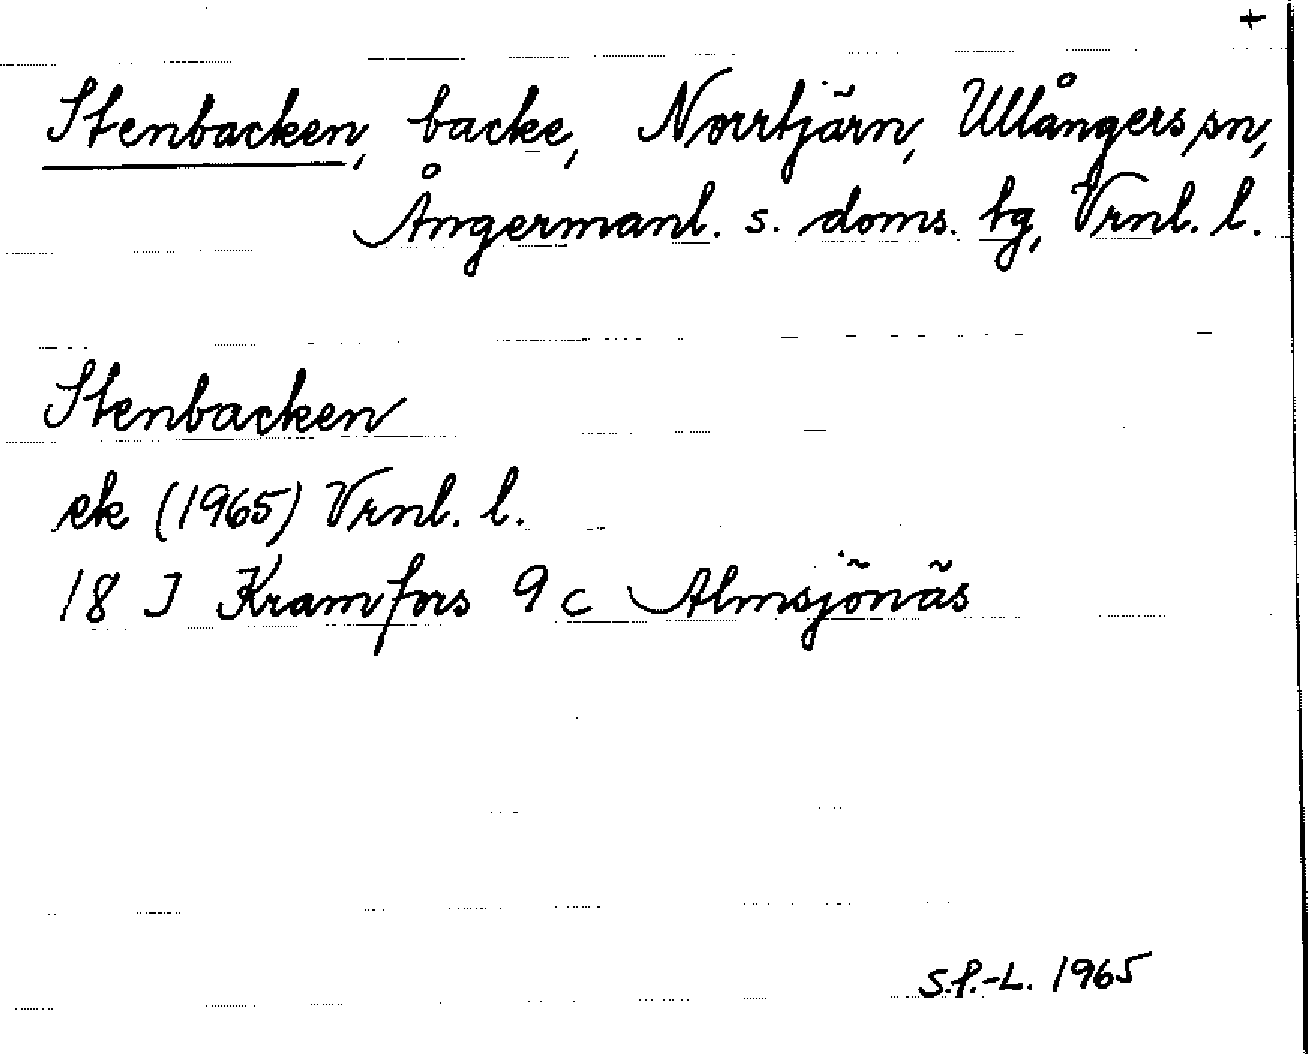 +
Stenbacken, backe, Norrtjärn, Ullångers sn,
Ångermanl. s. doms. tg, Vrnl. l.
Stenbacken
ek (1965) Vrnl. l.
18 J Kramfors 9 c Almsjönäs
S.f.-L. 1965